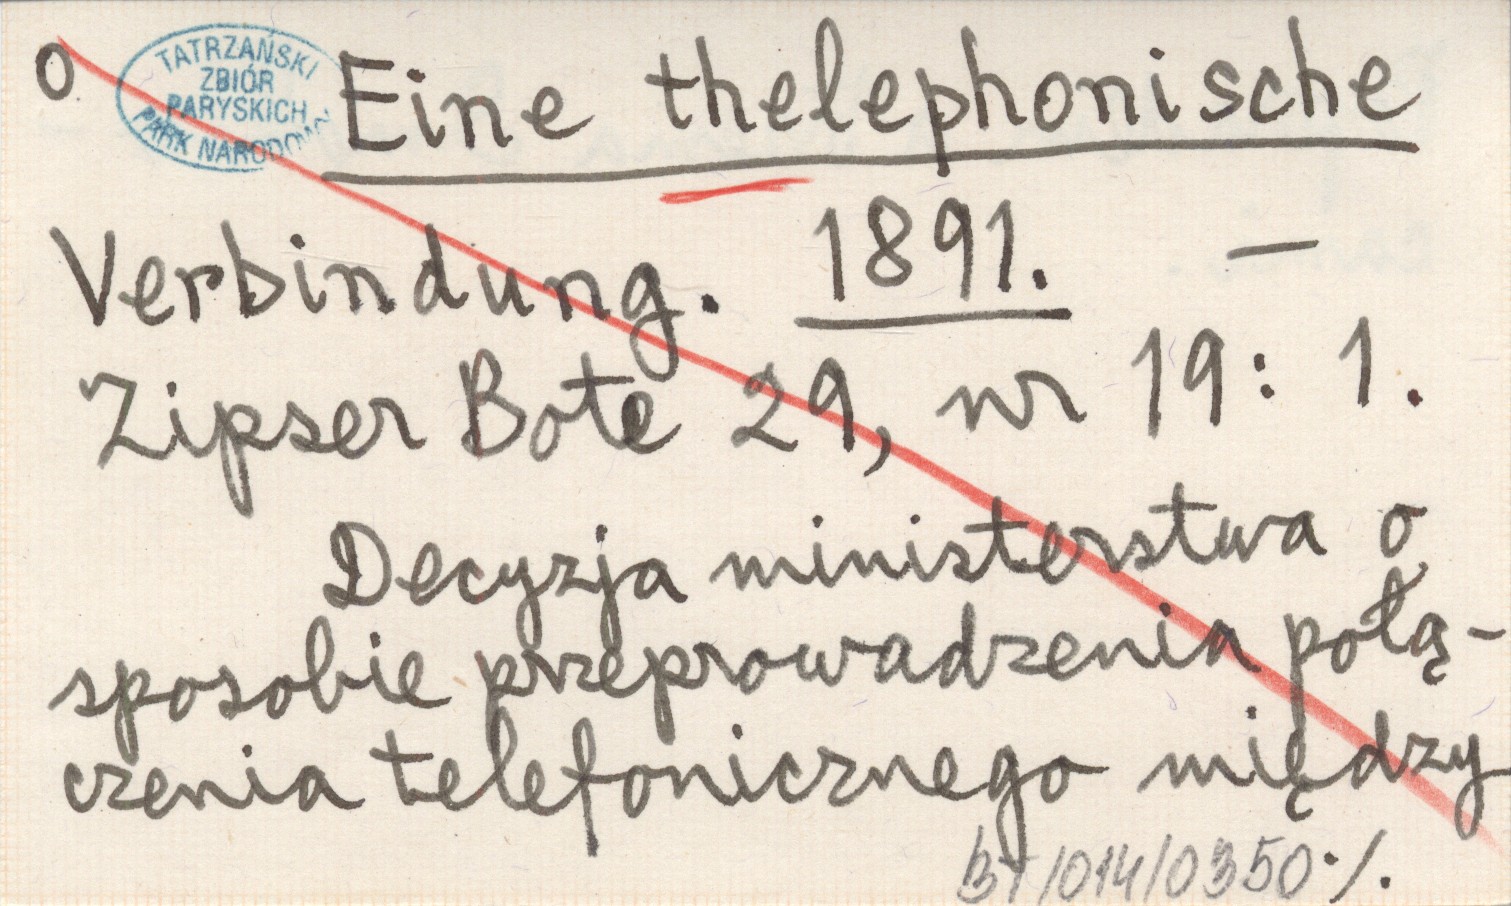 O
TATRZAŃSKI
ZBIÓR
PARYSKICH
PARK NARODOWY
Eine thelephonische
Verbindung. 1891. —
Zipser Bote 29, nr 19: 1.
Decyzja ministerstwa o
sposobie przeprowadzenia połą-
czenia telefonicznego między
BT/014/0350 ·/.